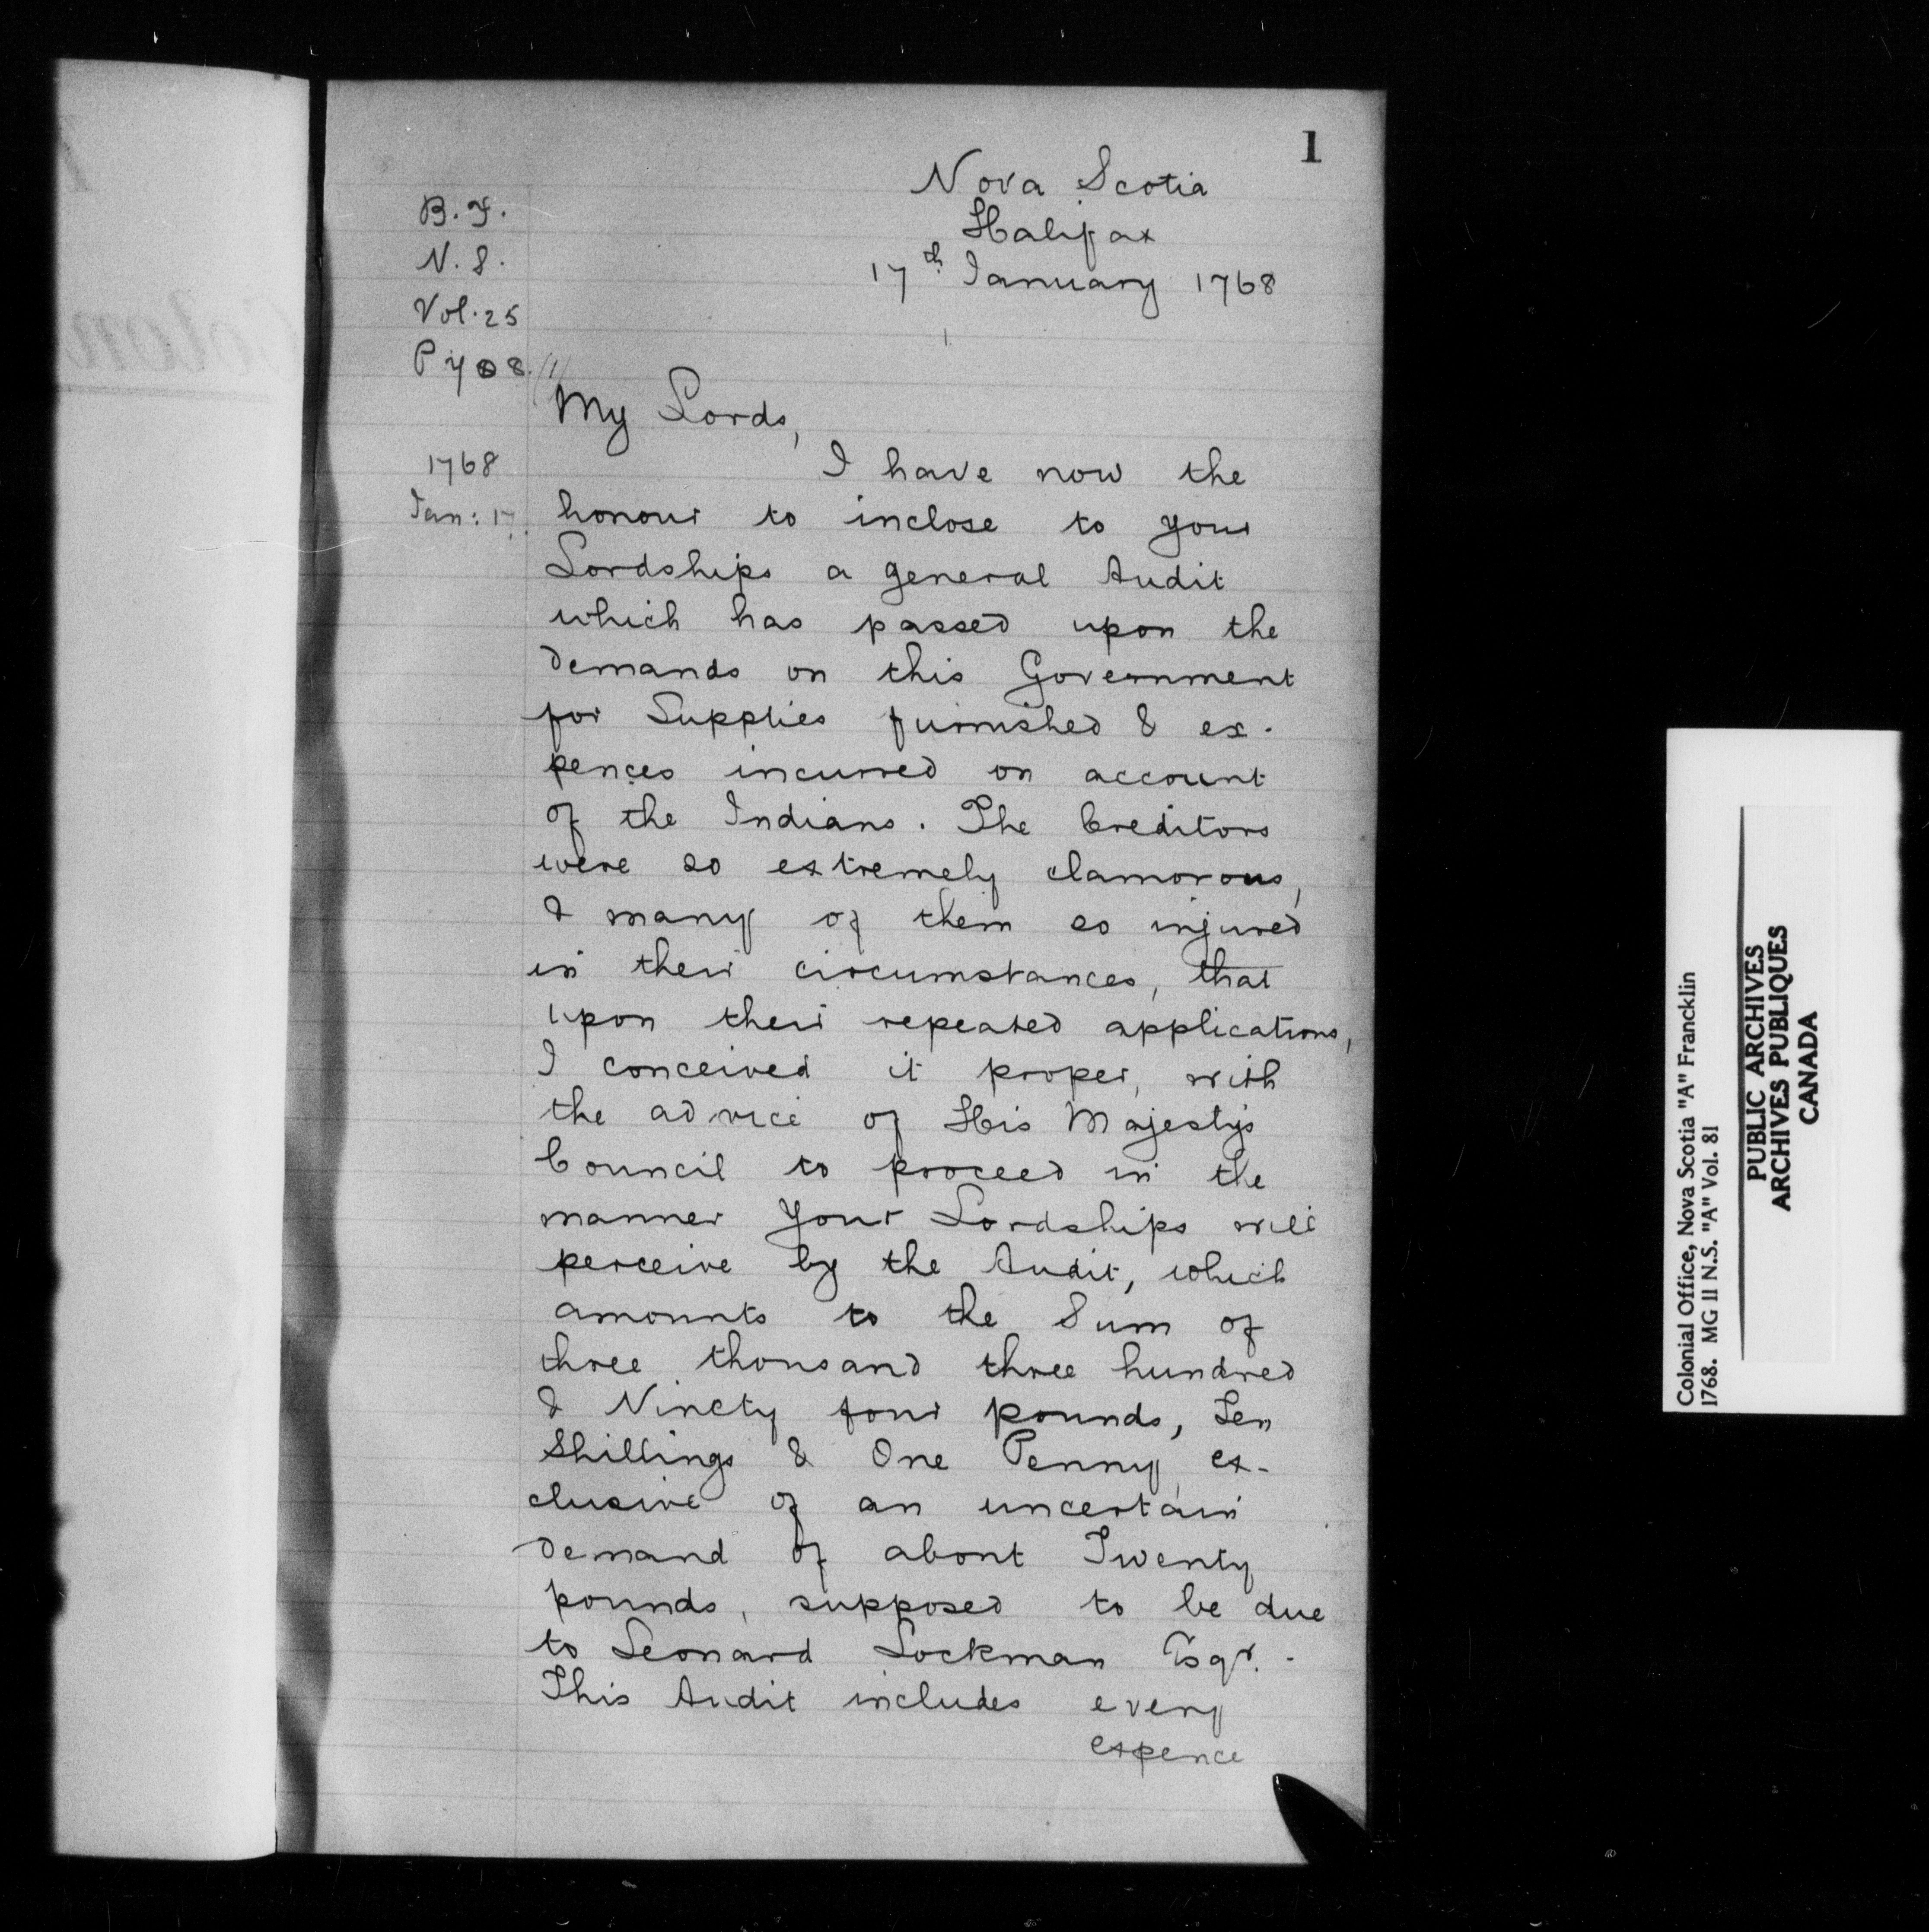 1
Nova Scotia
Halifax
17th January 1768
B. T.
N. S.
Vol. 25
My Lords,
1768
Jan: 17.
I have now the
honour to inclose to your
Lordships a general Audit
which has passed upon the
demands on this Government
for Supplies furnished & ex-
pences incurred on account
of the Indians. The Creditors
were so extremely clamorous,
& many of them so injured
in their circumstances, that
upon their repeated applications,
I conceived it proper, with
the advice of His Majesty's
Council to proceed in the
manner your Lordships will
perceive by the Audit, which
amounts to the Sum of
three thousand three hundred
& Ninety four pounds, Ten
Shillings & One Penny, ex-
clusive of an uncertain
demand of about Twenty
pounds, supposed to be due
to Leonard Lockman Esqr. -
This Audit includes every
expence
Colonial Office, Nova Scotia "A" Francklin
1768. MG 11 N.S. "A" Vol. 81
PUBLIC ARCHIVES
ARCHIVES PUBLIQUES
CANADA